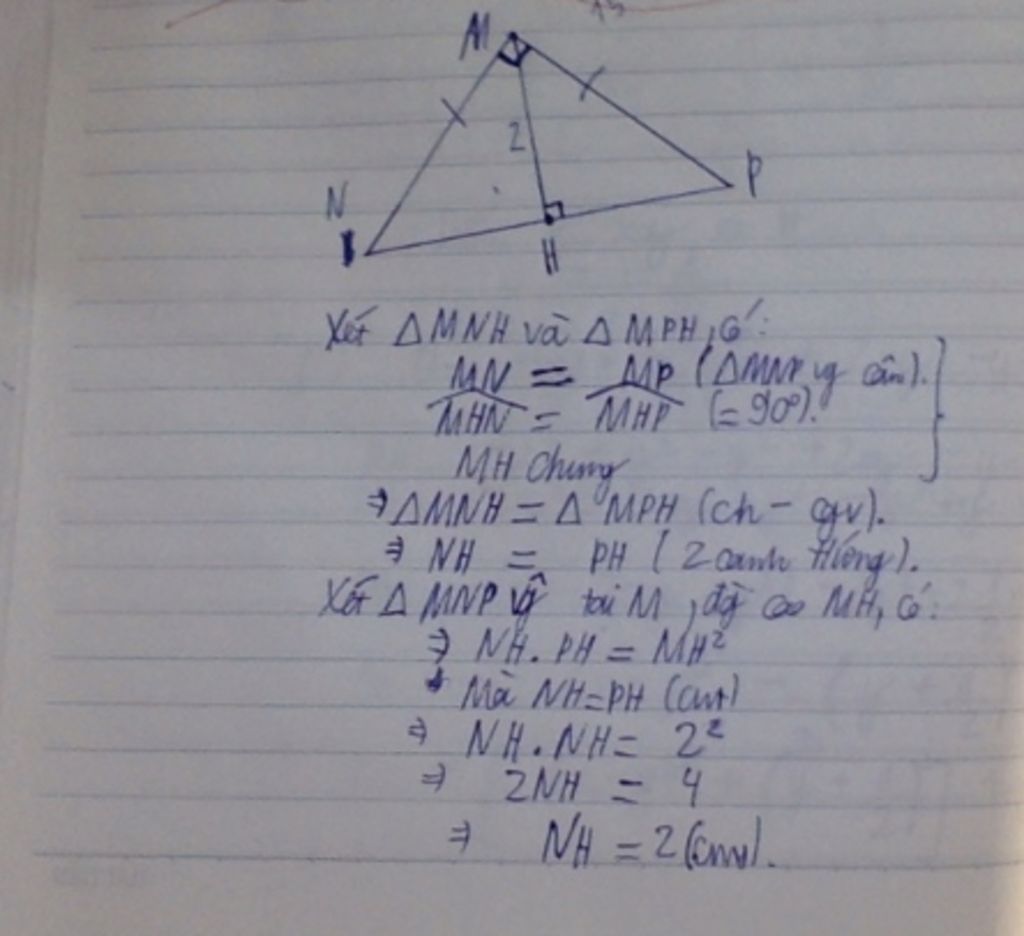 15
M
2
N
P
H
Xét △MNH và △MPH, có:
MN = MP (△MNP vg cân).
MHN = MHP (= 90°).
MH chung
⇒ △MNH = △MPH (ch - cgv).
⇒ NH = PH (2 cạnh tương).
Xét △MNP vg tại M, đg cao MH, có:
⇒ NH . PH = MH²
Mà NH = PH (cmt)
⇒ NH . NH = 2²
⇒ 2NH = 4
⇒ NH = 2 (cm).